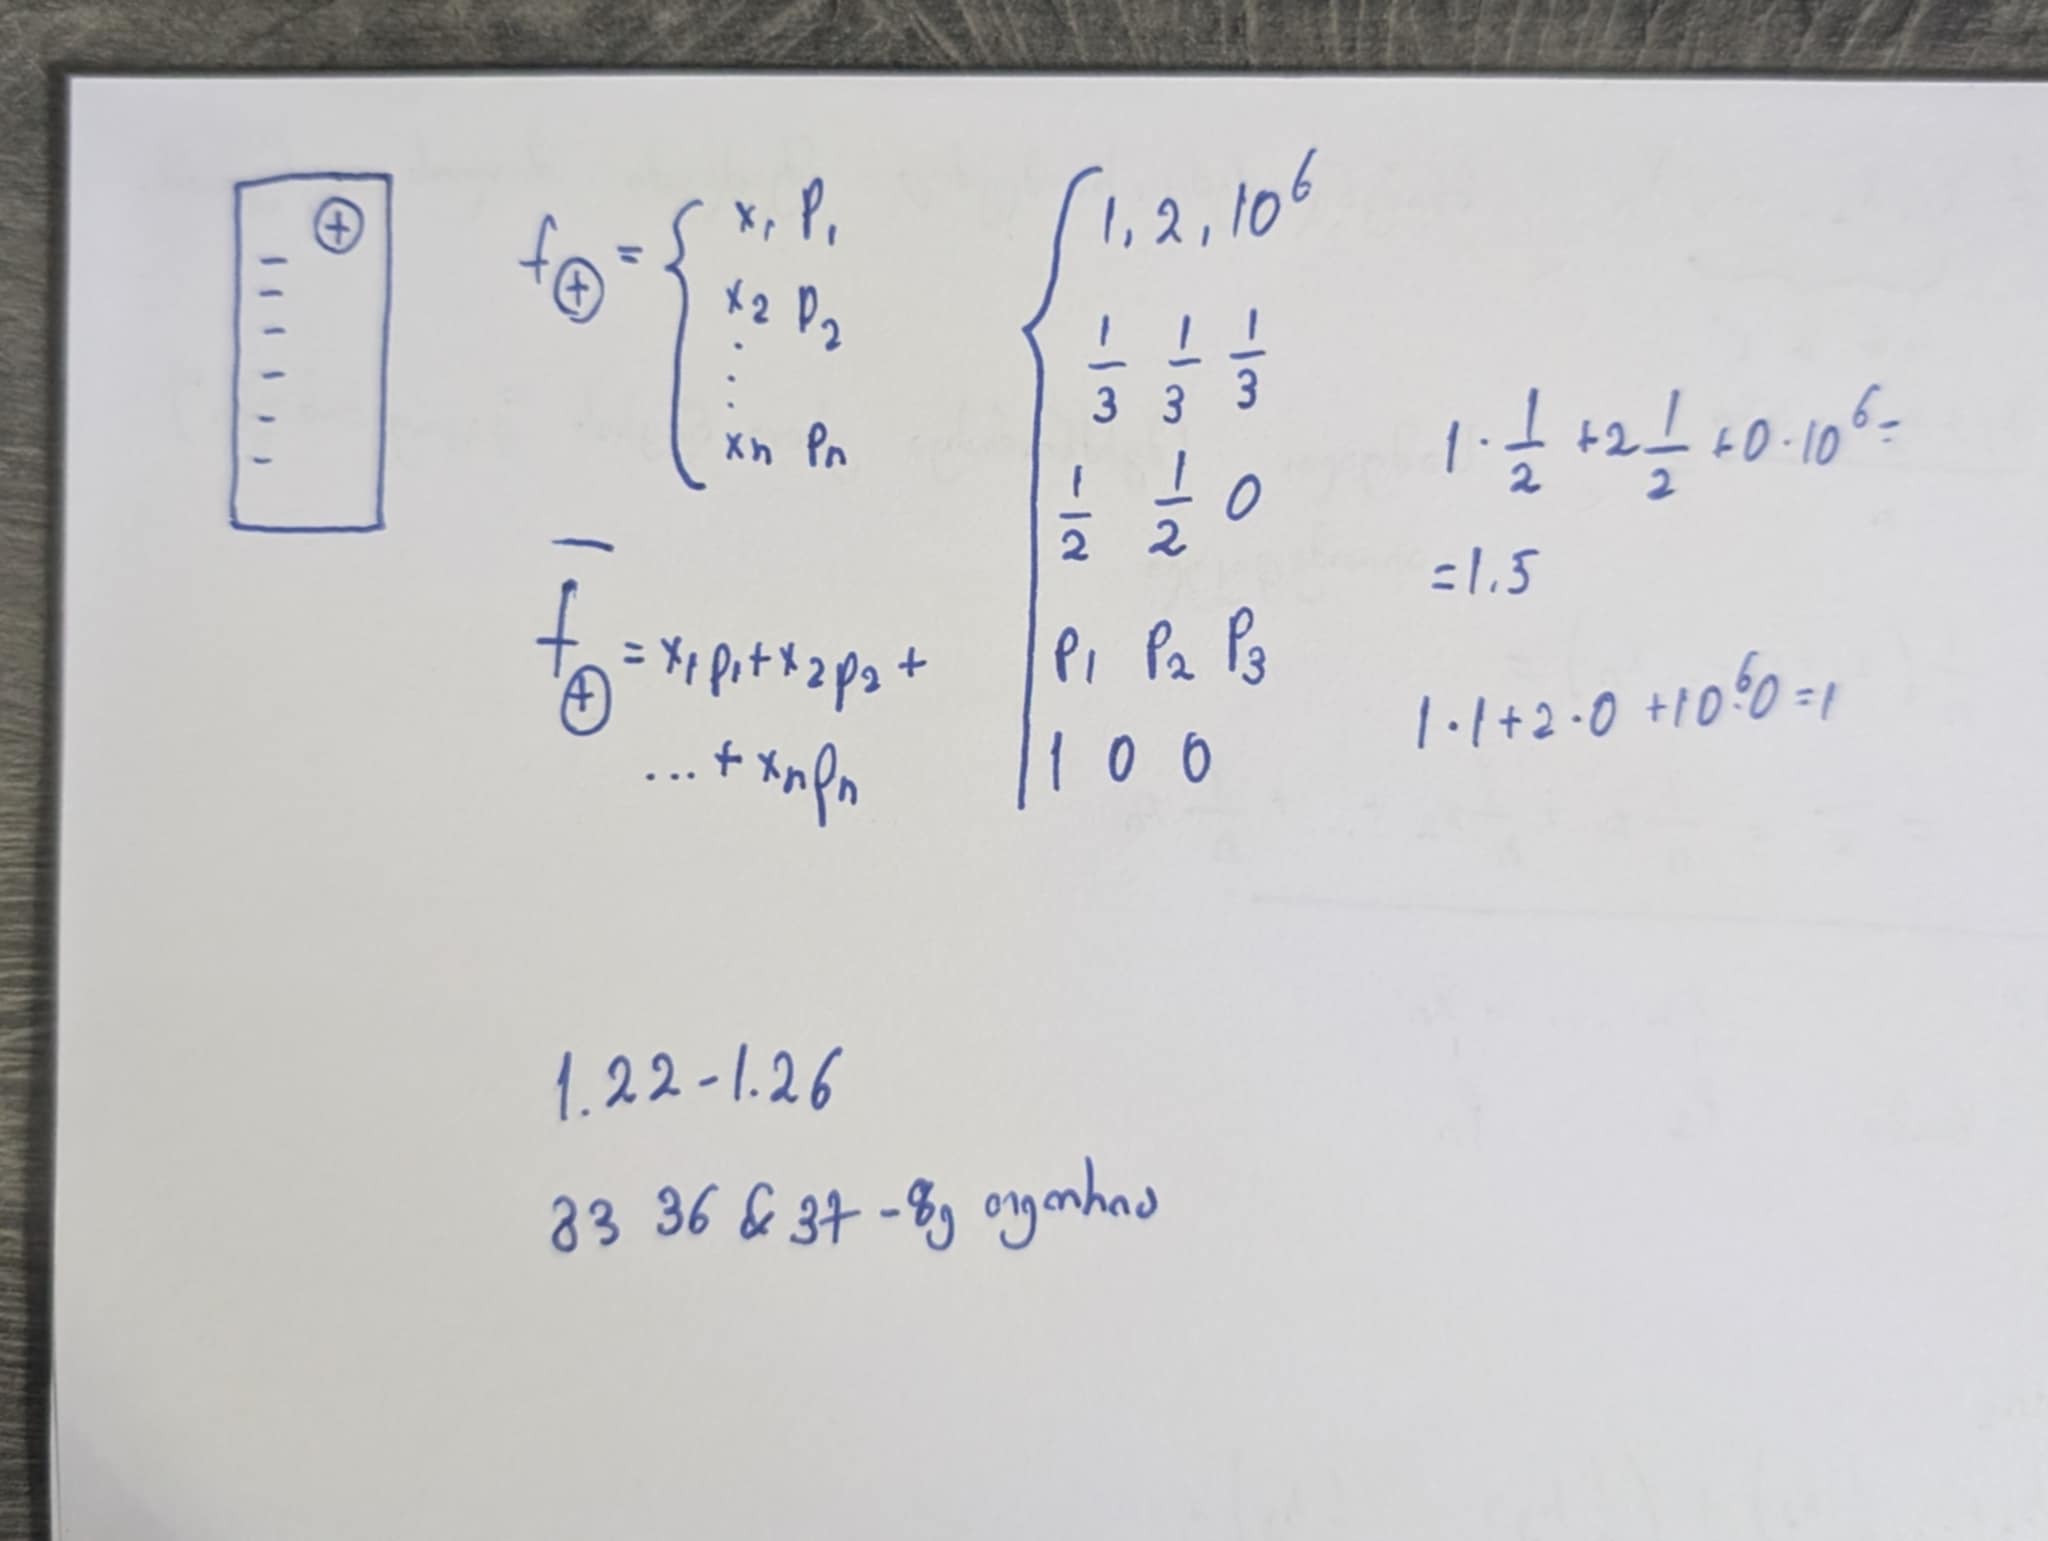 ⊕
f⊕ = { x₁ p₁
x₂ p₂
⋮
xn pn
f̄⊕ = x₁p₁ + x₂p₂ +
... + xnpn
{ 1, 2, 10⁶
1/3 1/3 1/3
1/2 1/2 0
p₁ p₂ p₃
1 0 0
1 · 1/2 + 2 1/2 + 0 · 10⁶ =
= 1.5
1 · 1 + 2 · 0 + 10⁶ · 0 = 1
1.22 - 1.26
33 36 & 37